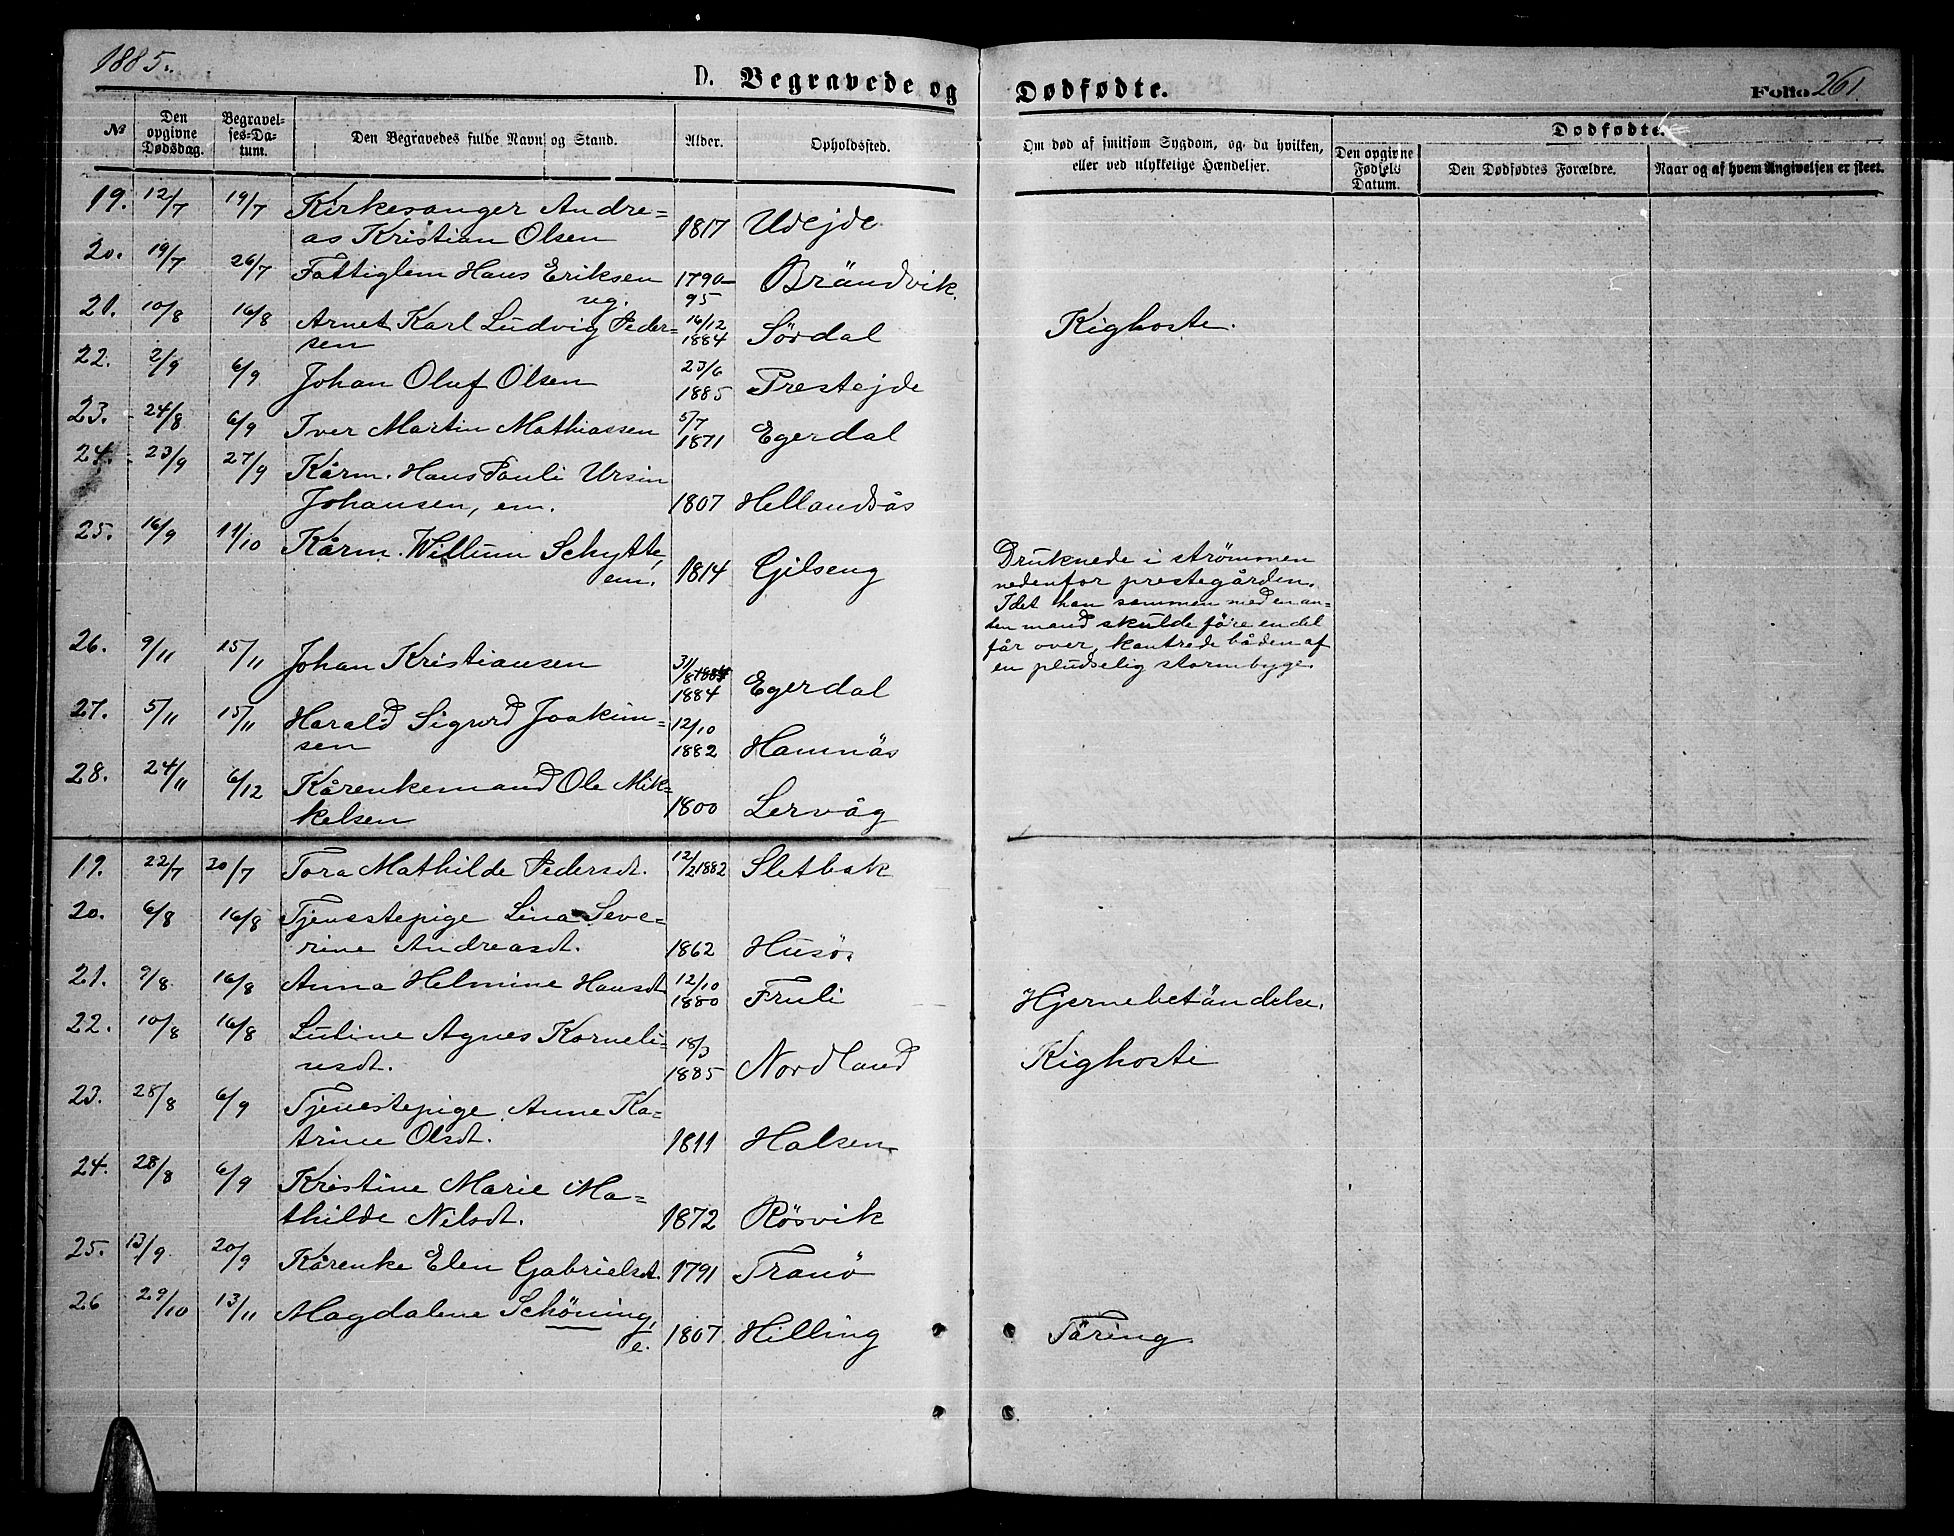 1885.
D. Begravede og Dødfødte. Folio 261
№ Den opgivne Dødsdag. Begravelses-Datum. Den Begravedes fulde Navn og Stand. Alder. Opholdssted. Om død af smitsom Sygdom, og da hvilken, eller ved ulykkelige Hændelser. Dødfødte. Den opgivne Fødsels Datum. Den Dødfødtes Forældre. Naar og af hvem Angivelsen er skeet.
19. 12/7 19/7 Kirkesanger Andre=
as Kristian Olsen 1817 Udejde
20. 19/7 26/7 Fattiglem Hans Eriksen 1790-
ug. 95 Brändvik.
21. 10/8 16/8 Arnet Karl Ludvig Peder= 16/12
sen 1884 Sördal Kighoste.
22. 2/9 6/9 Johan Oluf Olsen 23/6
1885 Prestejde
23. 24/8 6/9 Iver Martin Mathiassen 5/7
1871 Egerdal
24. 23/9 27/9 Kårm. Hans Pauli Ursin
Johansen, em. 1807 Hellandsås
25. 16/9 11/10 Kårm. Willum Schytte,
em. 1814 Gilseng
Druknede i strømmen
nedenfor prestegården.
Idet han sammen med en an=
den mand skulde føre en del
får over, kantrede båden af
en pludselig stormbyge.
26. 9/11 15/11 Johan Kristiansen 31/8 1884
1884 Egerdal
27. 5/11 15/11 Harald Sigurd Joakim= 12/10
sen 1882 Hamnäs
28. 24/11 6/12 Kårenkemand Ole Mik=
kelsen 1800 Lervåg
19. 22/7 30/7 Tora Mathilde Pedersdt. 12/2 1882 Sletbak
20. 6/8 16/8 Tjenestepige Lina Seve=
rine Andreasdt. 1862 Husö.
21. 9/8 16/8 Anna Helmine Hansdt 12/10
1880 Fruli Hjernebetändelse.
22. 10/8 16/8 Lutine Agnes Korneli= 18/3
usdt. 1885 Nordland Kighoste
23. 28/8 6/9 Tjenestepige Anne Ka=
trine Olsdt. 1811 Halsen
24. 28/8 6/9 Kristine Marie Ma=
thilde Nilsdt. 1872 Røsvik
25. 13/9 20/9 Kårenke Elen Gabrielsdt. 1791 Tranö
26 29/10 13/11 Magdalene Schöning,
e. 1807. Hilling Täring.